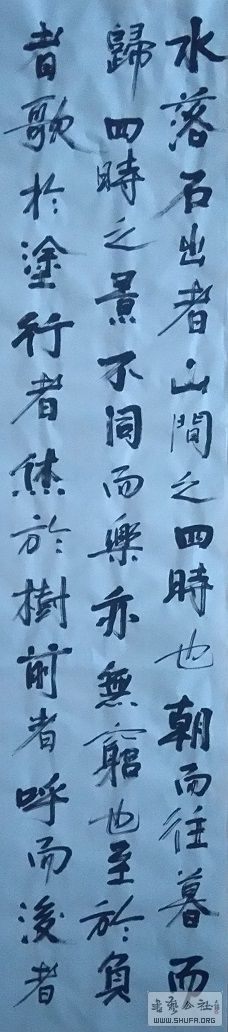 水落石出者山間之四時也朝而往暮而
歸四時之景不同而樂亦無窮也至於負
者歌於塗行者休於樹前者呼而後者
书艺公社
WWW.SHUFA.ORG